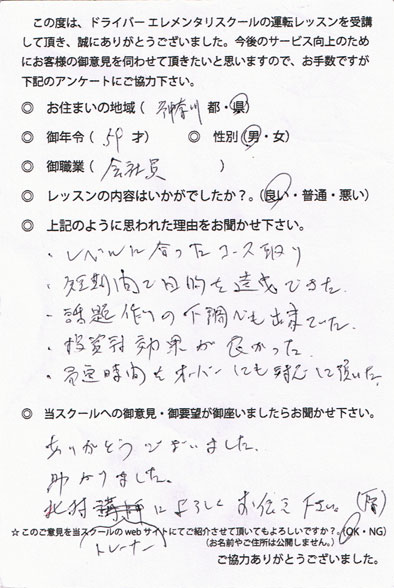 この度は、ドライバー エレメンタリスクールの運転レッスンを受講
して頂き、誠にありがとうございました。今後のサービス向上のため
にお客様の御意見を伺わせて頂きたいと思いますので、お手数ですが
下記のアンケートにご協力下さい。
◎ お住まいの地域( 神奈川 都・県)
◎ 御年令( 59 才) ◎ 性別(男・女)
◎ 御職業( 会社員 )
◎ レッスンの内容はいかがでしたか?。(良い・普通・悪い)
◎ 上記のように思われた理由をお聞かせ下さい。
・レベルに合ったコース取り
・短期間で目的を達成できた.
・話題作りの下調べも出来ていた.
・投資対効果が良かった.
・時間をオーバーにも対応して頂いた.
◎ 当スクールへの御意見・御要望が御座いましたらお聞かせ下さい。
ありがとうございました.
助かりました。
北村講師によろしくお伝え下さい。
トレーナー
☆このご意見を当スクールのwebサイトにてご紹介させて頂いてもよろしいですか?。(OK・NG)
(お名前やご住所は公開しません。)
ご協力ありがとうございました。